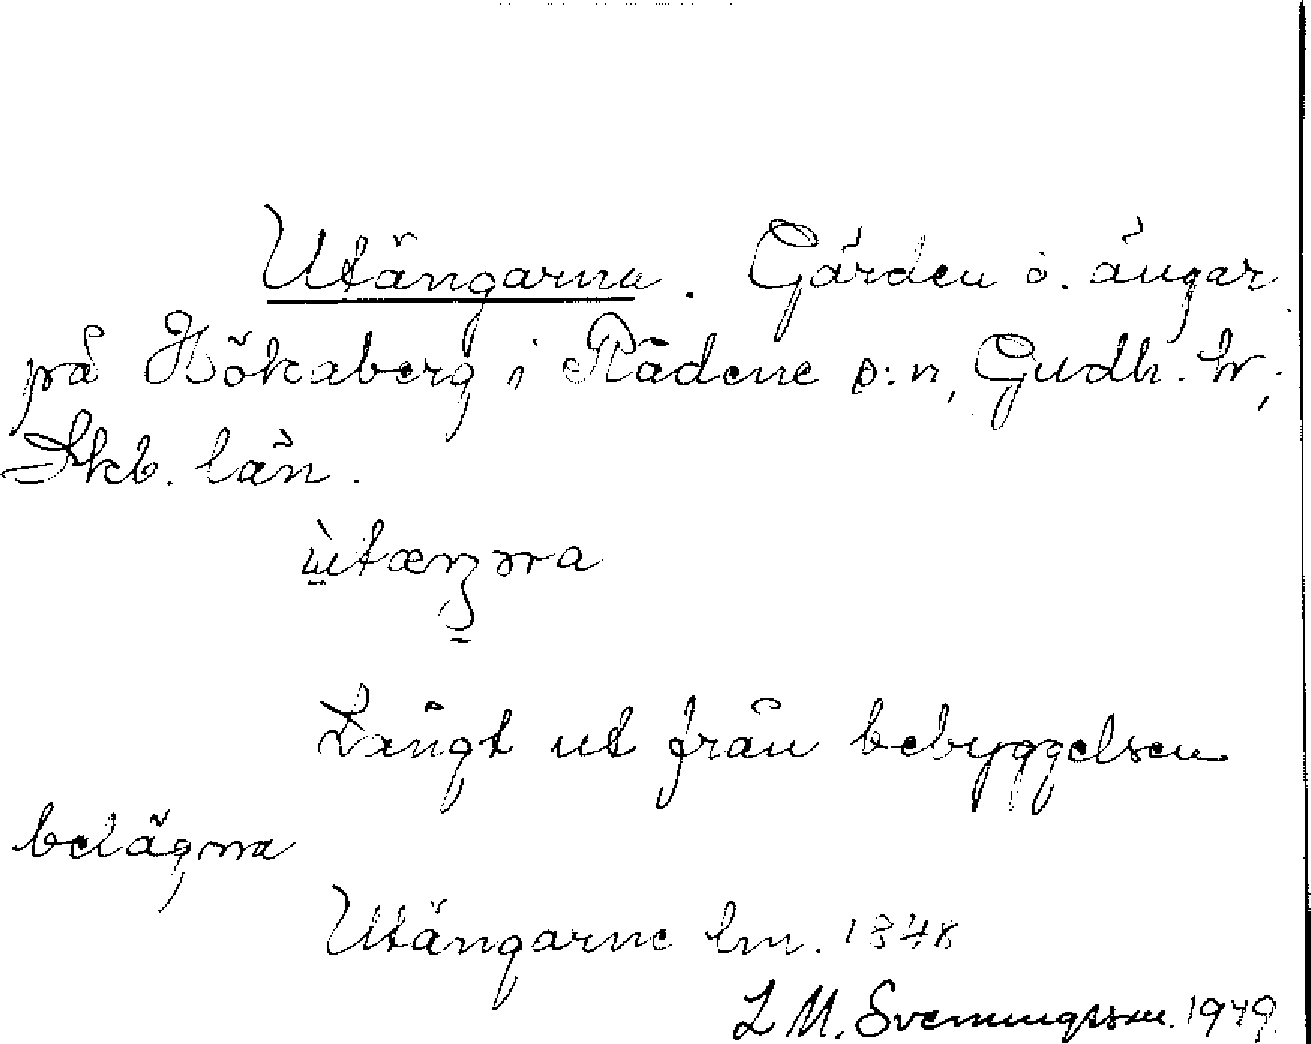 Utängarna. Gärden o. ängar
på Hökaberg i Rådene s:n, Gudh. hr,
Skb. län.
ùtæŋәrna
Långt ut från bebyggelsen
belägna
Utängarne lm. 1848
L M. Svenungsson. 1949.